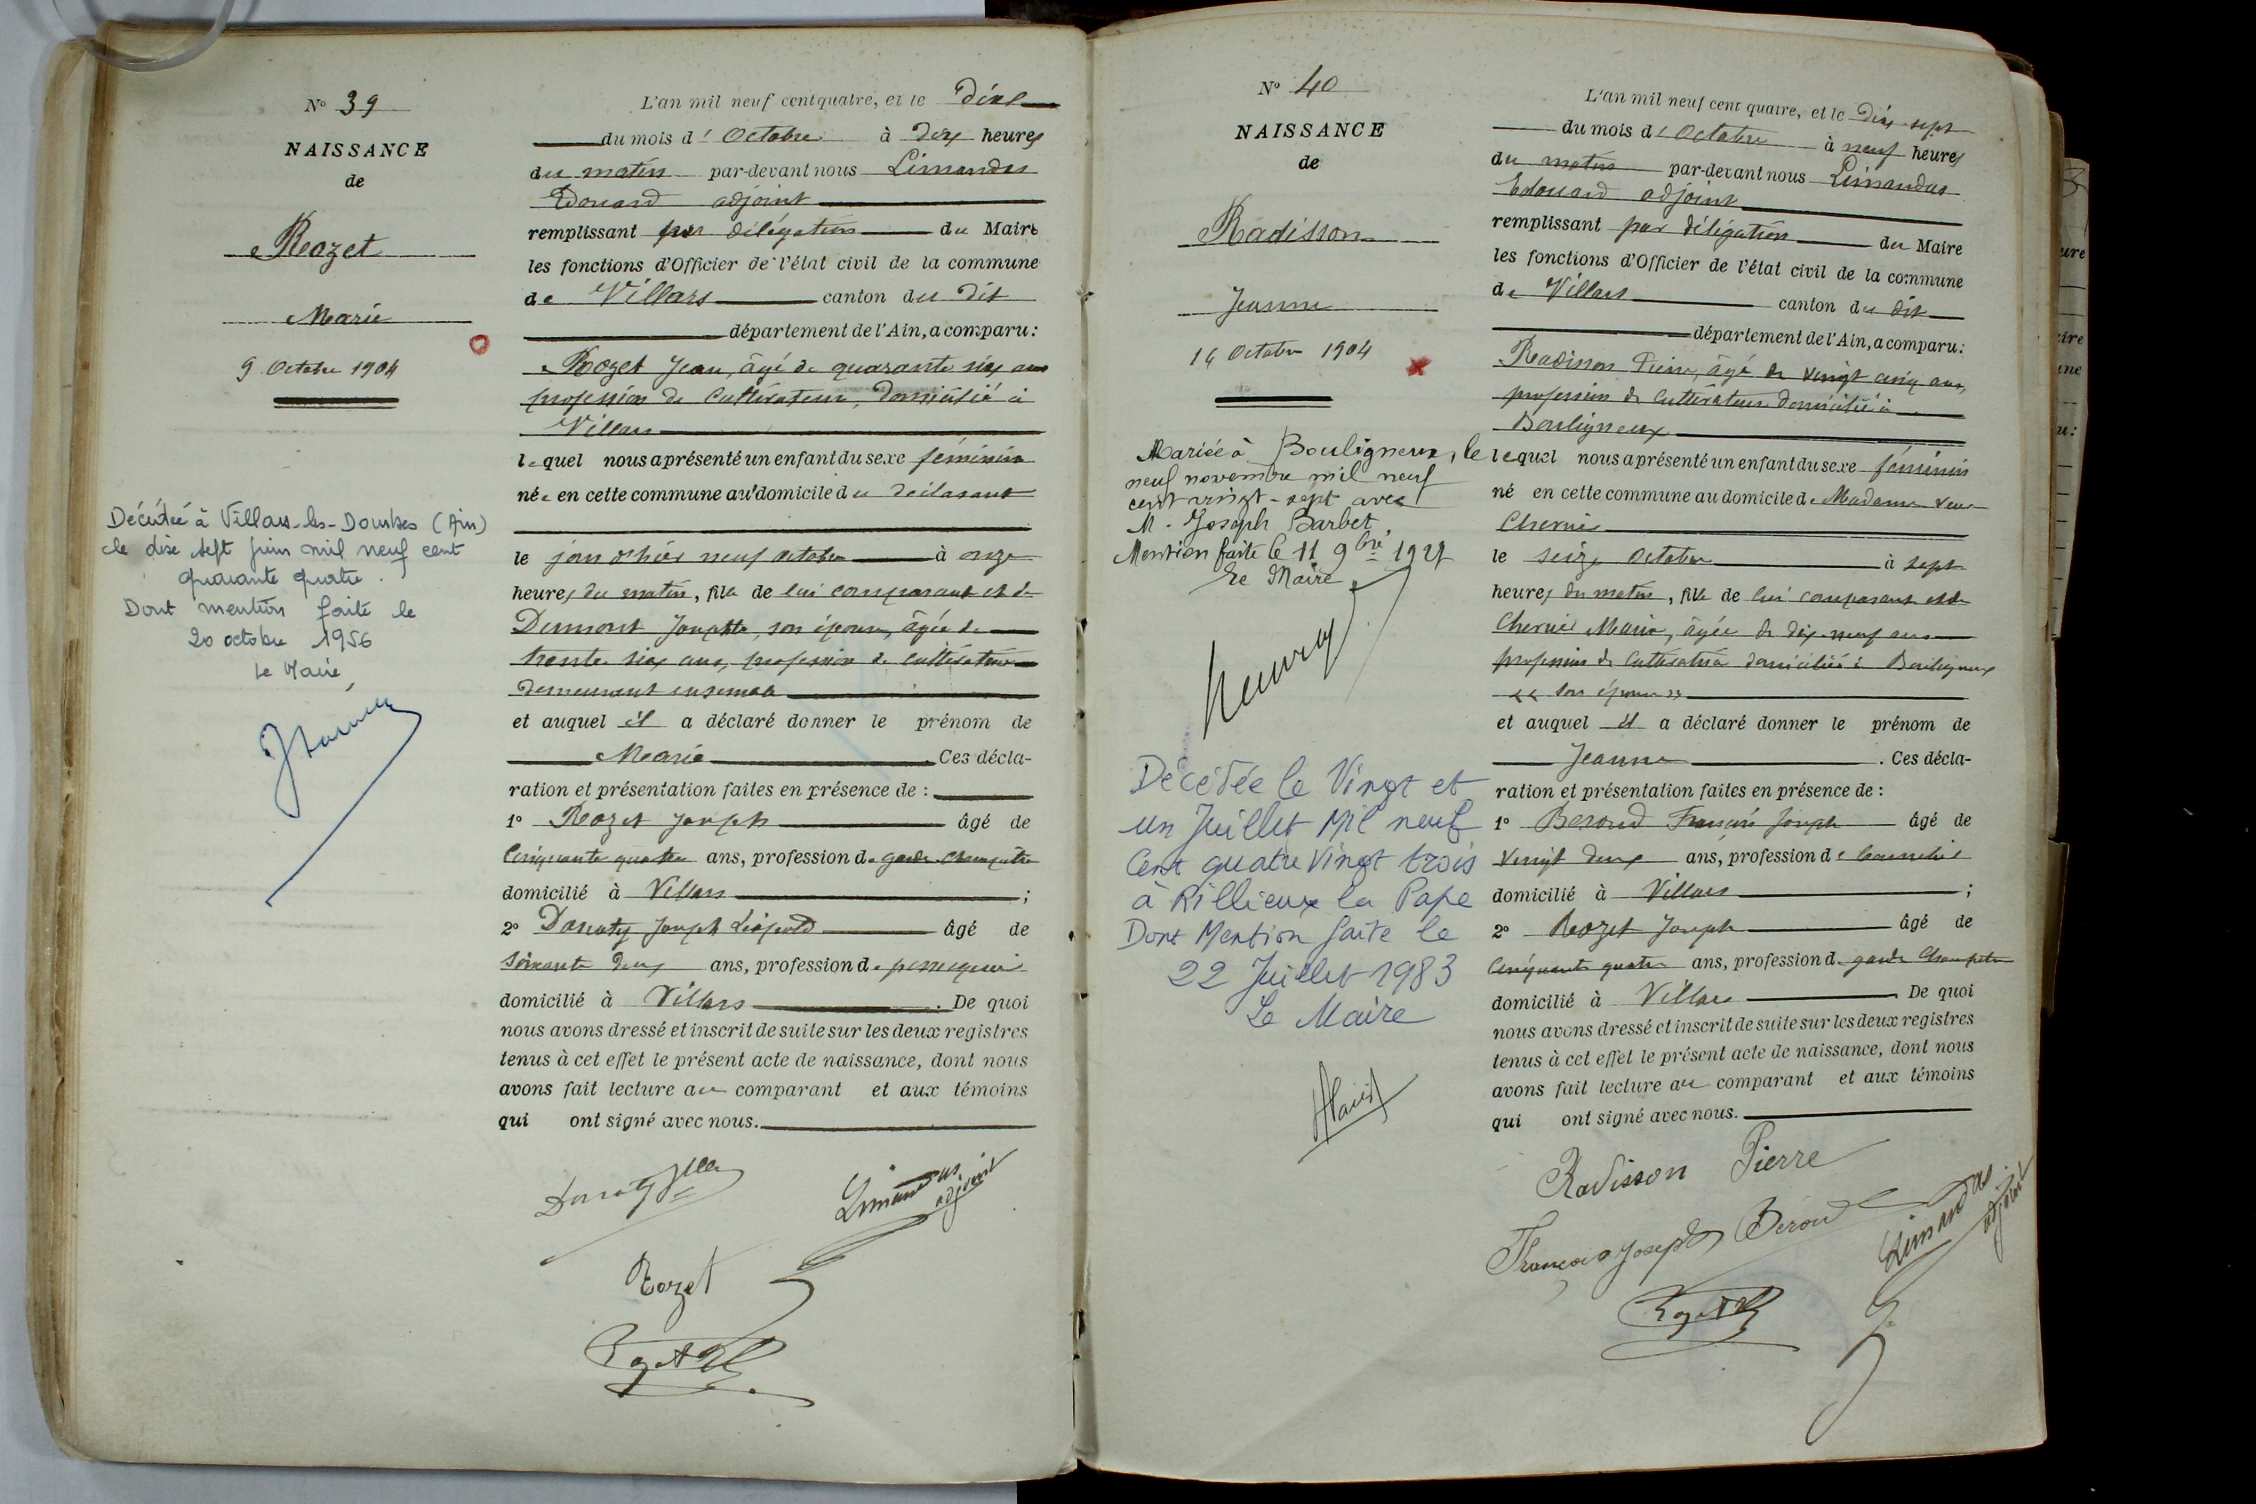 N° 39
NAISSANCE
de
Rozet
Marie
9 Octobre 1904
Décédée à Villars-les-Dombes (Ain)
le dix sept juin mil neuf cent
quarante quatre.
Dont mention faite le
20 octobre 1956
Le Maire
L'an mil neuf cent quatre, et le dix
du mois d' Octobre à dix heures
du matin par-devant nous Limandas
Edouard adjoint
remplissant par délégation du Maire
les fonctions d'Officier de l'état civil de la commune
de Villars canton du dit
département de l'Ain, a comparu:
Rozet Jean, âgé de quarante six ans
profession de Cultivateur, domicilié à
Villars
lequel nous a présenté un enfant du sexe féminin
née en cette commune au domicile du déclarant
le jour d'hier neuf octobre à onze
heures du matin, fille de lui comparant et de
Dumont Josephte, son épouse, âgée de
trente six ans, profession de cultivatrice
demeurant ensemble
et auquel il a déclaré donner le prénom de
Marie. Ces décla-
ration et présentation faites en présence de:
1° Rozet Joseph âgé de
Cinquante quatre ans, profession de garde champêtre
domicilié à Villars;
2° Donaty Joseph Léopold âgé de
soixante deux ans, profession de perruquier
domicilié à Villars. De quoi
nous avons dressé et inscrit de suite sur les deux registres
tenus à cet effet le présent acte de naissance, dont nous
avons fait lecture au comparant et aux témoins
qui ont signé avec nous.
Donaty
Limandas
adjoint
Rozet
Rozet
N° 40
NAISSANCE
de
Radisson
Jeanne
16 Octobre 1904
Mariée à Bouligneux, le
neuf novembre mil neuf
cent vingt-sept avec
M. Joseph Barbet.
Mention faite le 11 9bre 1927
Le Maire
Décédée le Vingt et
un Juillet Mil neuf
Cent quatre Vingt trois
à Rillieux la Pape
Dont Mention faite le
22 Juillet 1983
Le Maire
L'an mil neuf cent quatre, et le Dix sept
du mois d' Octobre à neuf heures
du matin par-devant nous Limandas
Edouard adjoint
remplissant par délégation du Maire
les fonctions d'Officier de l'état civil de la commune
de Villars canton du dit
département de l'Ain, a comparu:
Radisson Pierre, âgé de vingt cinq ans,
profession de Cultivateur domicilié à
Bouligneux
lequel nous a présenté un enfant du sexe féminin
né en cette commune au domicile de Madame veuve
Chernié
le seize octobre à sept
heures du matin, fille de lui comparant et de
Chernié Marie, âgée de dix-neuf ans
profession de Cultivatrice domiciliée à Bouligneux
"son épouse"
et auquel il a déclaré donner le prénom de
Jeanne. Ces décla-
ration et présentation faites en présence de:
1° Beroud François Joseph âgé de
vingt deux ans, profession de
domicilié à Villars;
2° Rozet Joseph âgé de
Cinquante quatre ans, profession de garde Champêtre
domicilié à Villars. De quoi
nous avons dressé et inscrit de suite sur les deux registres
tenus à cet effet le présent acte de naissance, dont nous
avons fait lecture au comparant et aux témoins
qui ont signé avec nous.
Radisson Pierre
François Joseph Beroud
Limandas
adjoint
Rozet